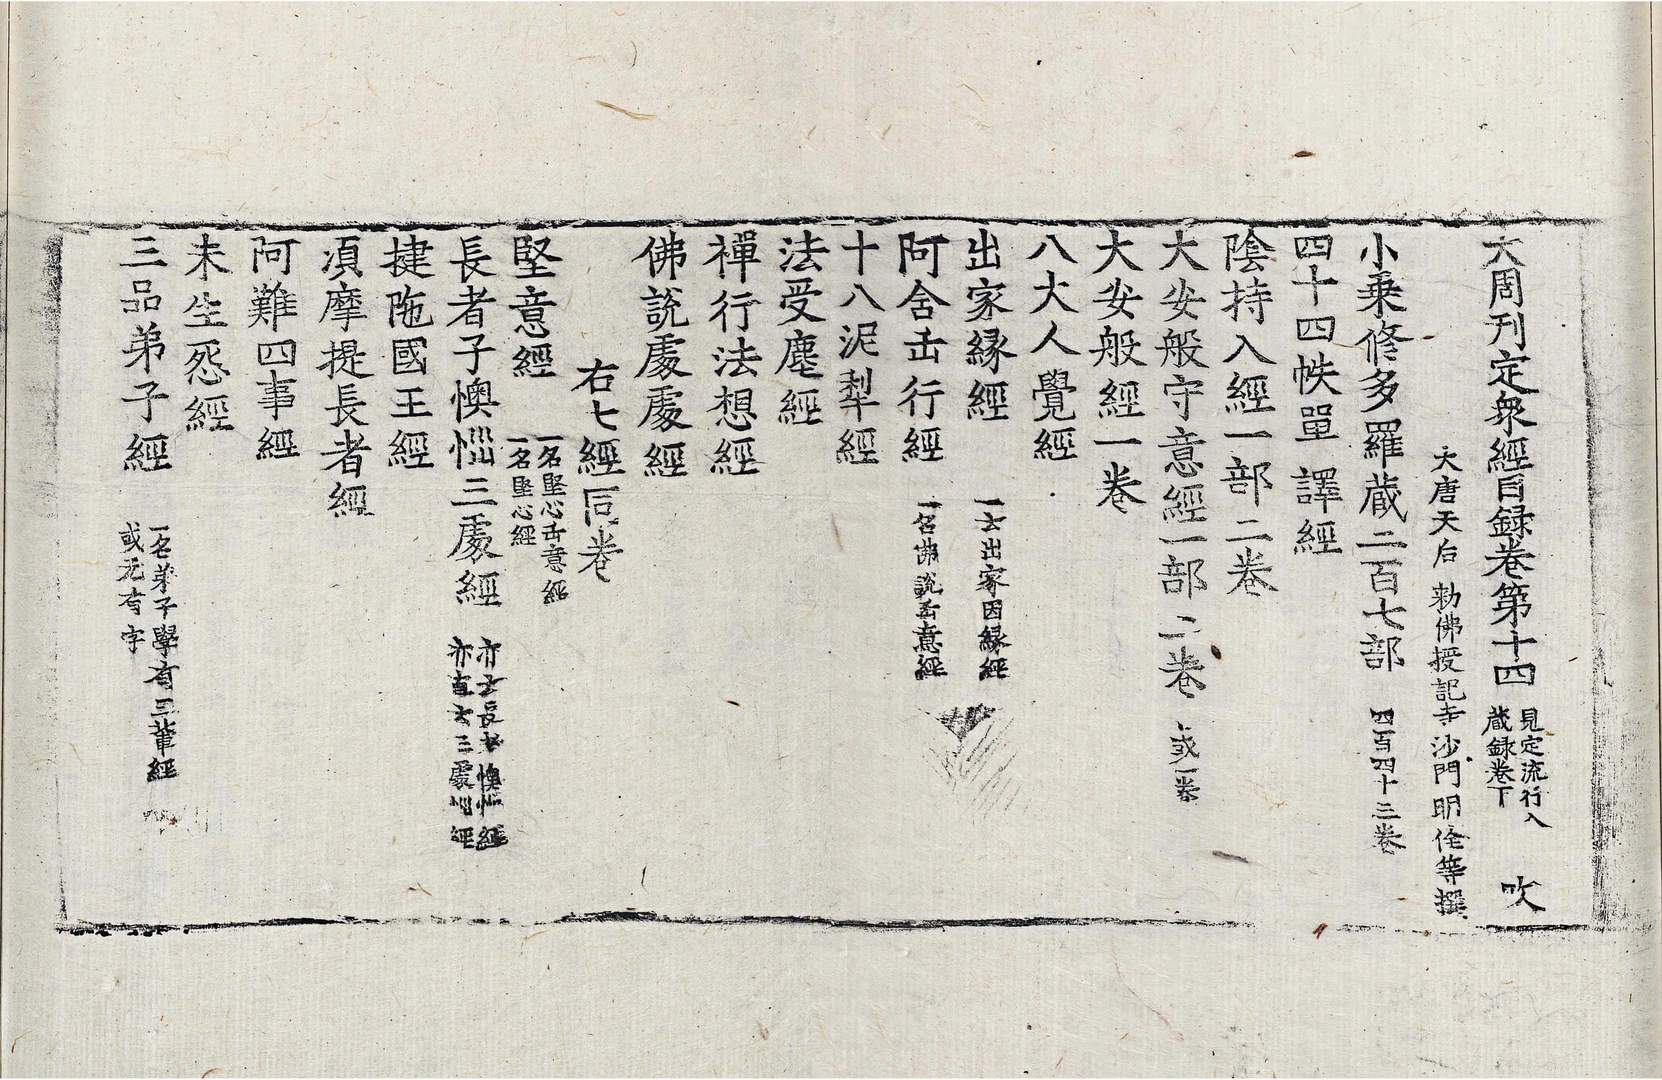 大周刊定衆經目録卷第十四 見定流行入蔵録卷下 吹
大唐天后勑佛授記寺沙門明佺等撰
小乗修多羅蔵二百七部 四百四十三卷
四十四帙單譯經
陰持入經一部二卷
大安般守意經一部二卷 或一卷
大安般經一卷
八大人覺經
出家縁經 一云出家因縁經
阿含击行經 一名佛説击意經
十八泥犁經
法受塵經
禪行法想經
佛說處處經
右七經同卷
堅意經 一名堅心击意經 一名堅心經
長者子懊惱三處經 亦云長者懊惱經 亦直云三處惱經
揵陁國王經
湏摩提長者經
阿難四事經
未生怨經
三品弟子經 一名弟子學有三輩經 或无有字